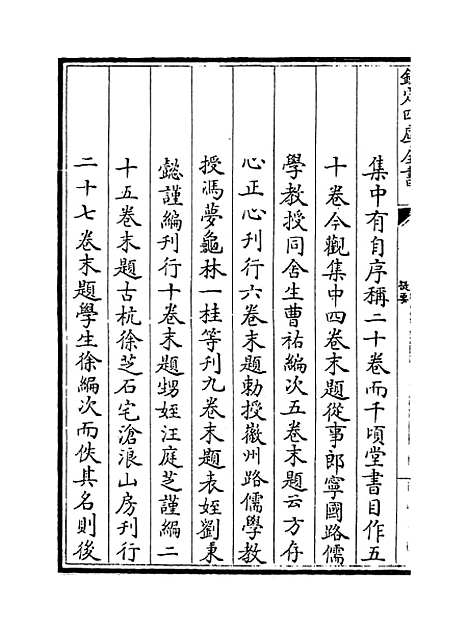 欽定四庫全書
提要
集中有自序稱二十卷而千頃堂書目作五
十卷今觀集中四卷末題從事郎寧國路儒
學教授同舍生曹祐編次五卷末題云方存
心正心刊行六卷末題勅授徽州路儒學教
授馮夢龜林一桂等刊九卷末題表姪劉秉
懿謹編刊行十卷末題甥姪汪庭芝謹編二
十五卷末題古杭徐芝石宅滄浪山房刊行
二十七卷末題學生徐編次而佚其名則後